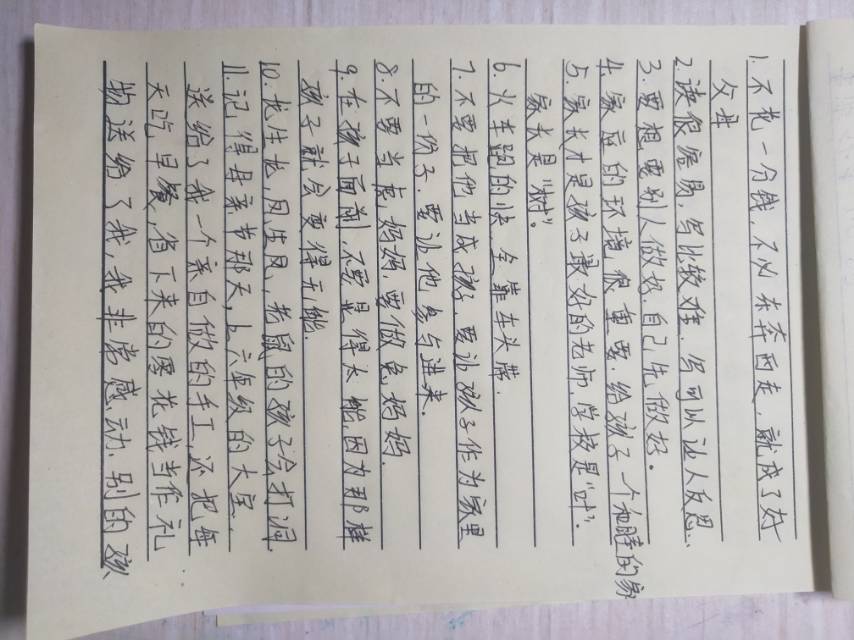 1.不花一分钱,不必东奔西走,就成了好
父母
2.读很容易,写比较难,写可以让人反思..
3.要想要别人做好.自己先做好。
4.家庭的环境很重要.给孩子一个和睦的家
5.家长才是孩子最好的老师,学校是“叶”.
家长是“树”。
6.火车跑的快,全靠车头带.
7.不要把他当成孩子,要让孩子作为家里
的一份子.要让他参与进来.
8.不要当虎妈妈,要做兔妈妈.
9.在孩子面前,不要显得太能,因为那样
孩子就会变得无能.
10.龙生龙,凤生凤,老鼠的孩子会打洞.
11.记得母亲节那天,上六年级的大宝..
送给了我一个亲自做的手工,还把每
天吃早餐,省下来的零花钱当作礼
物送给了我,我非常感动.别的孩